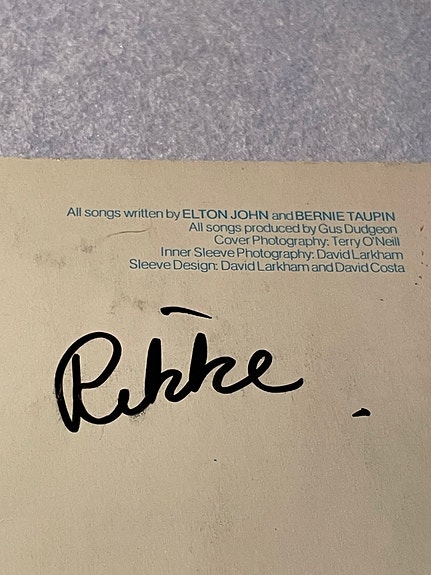 All songs written by ELTON JOHN and BERNIE TAUPIN
All songs produced by Gus Dudgeon
Cover Photography: Terry O'Neill
Inner Sleeve Photography: David Larkham
Sleeve Design: David Larkham and David Costa
Rikke.